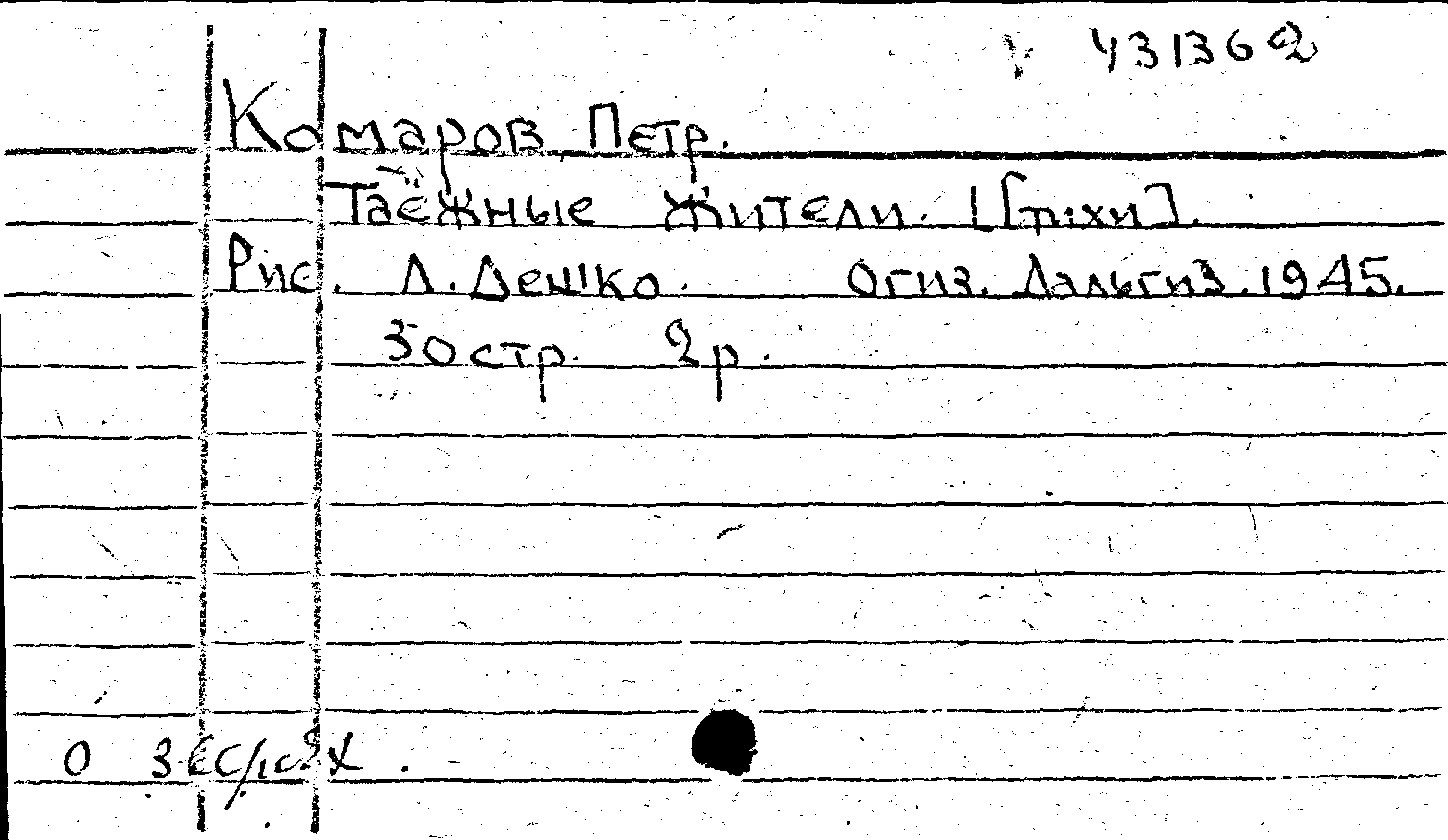 431362
Комаров Петр.
Таёжные жители. [Стихи].
Рис. Л. Дешко. Огиз. Дальгиз. 1945.
30 стр. 2 р.
О